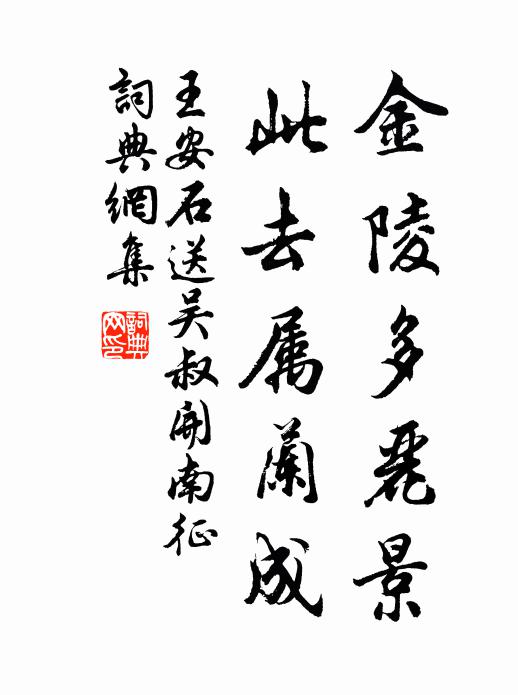 金陵多麗景
此去属蘭成
王安石送吴叔開南征
詞典網集
詞典网印